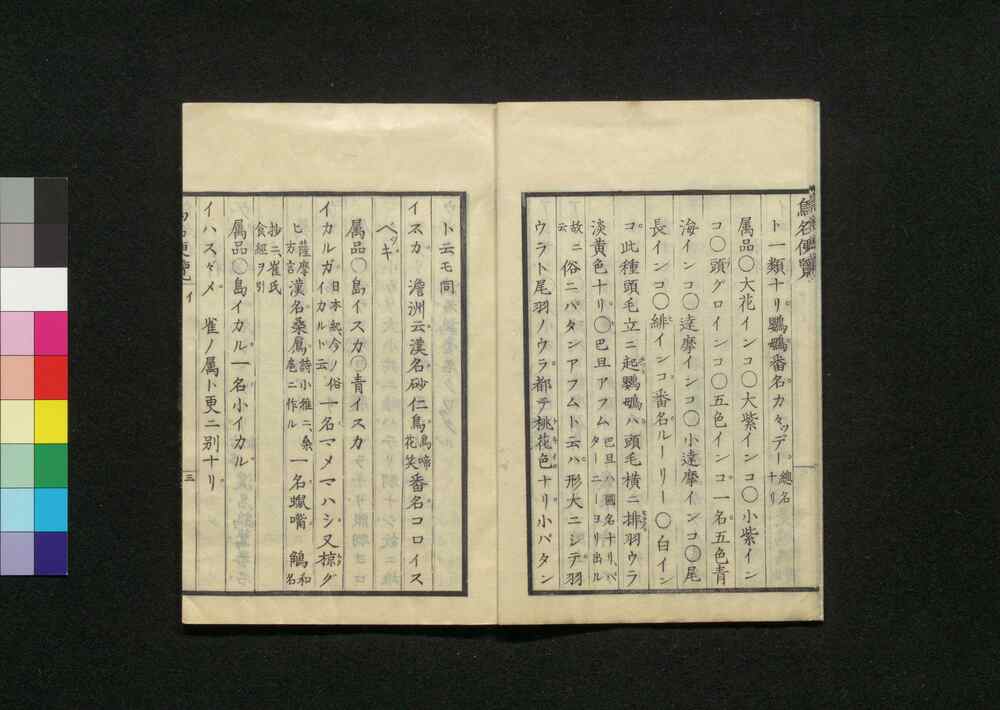 鳥名便覧
ト一類ナリ鸚鵡番名カタッデー 總名ナリ
属品〇大花インコ〇大紫インコ〇小紫イン
コ〇頭グロインコ〇五色インコ一名五色青
海インコ〇達摩インコ〇小達摩インコ〇尾
長インコ〇緋インコ番名ルーリー〇白イン
コ此種頭毛立ニ起鸚鵡ハ頭毛横ニ排羽ウラ
淡黄色ナリ〇巴旦アフム 巴旦ハ國名ナリ、バターニーヨリ出ル
故ニ云 俗ニバタンアフムト云ハ形大ニシテ羽
ウラト尾羽ノウラ都テ桃花色ナリ小バタン
ウト云モ同
イスカ 澹洲云漢名砂仁鳥 鳥啼花笑 番名コロイス
ベッキ
属品〇島イスカ〇青イスカ
イカルガ 日本紀今ノ俗イカルト云 一名マメマハシ又椋グ
ヒ 薩摩方言 漢名桑鳸 詩小雅ニ、桑扈ニ作ル 一名蠟嘴 鵤 和名
抄ニ崔氏食經ヲ引
属品〇島イカル一名小イカル
イハスヾメ 雀ノ属ト更ニ別ナリ
鳥名便覧 イ
三